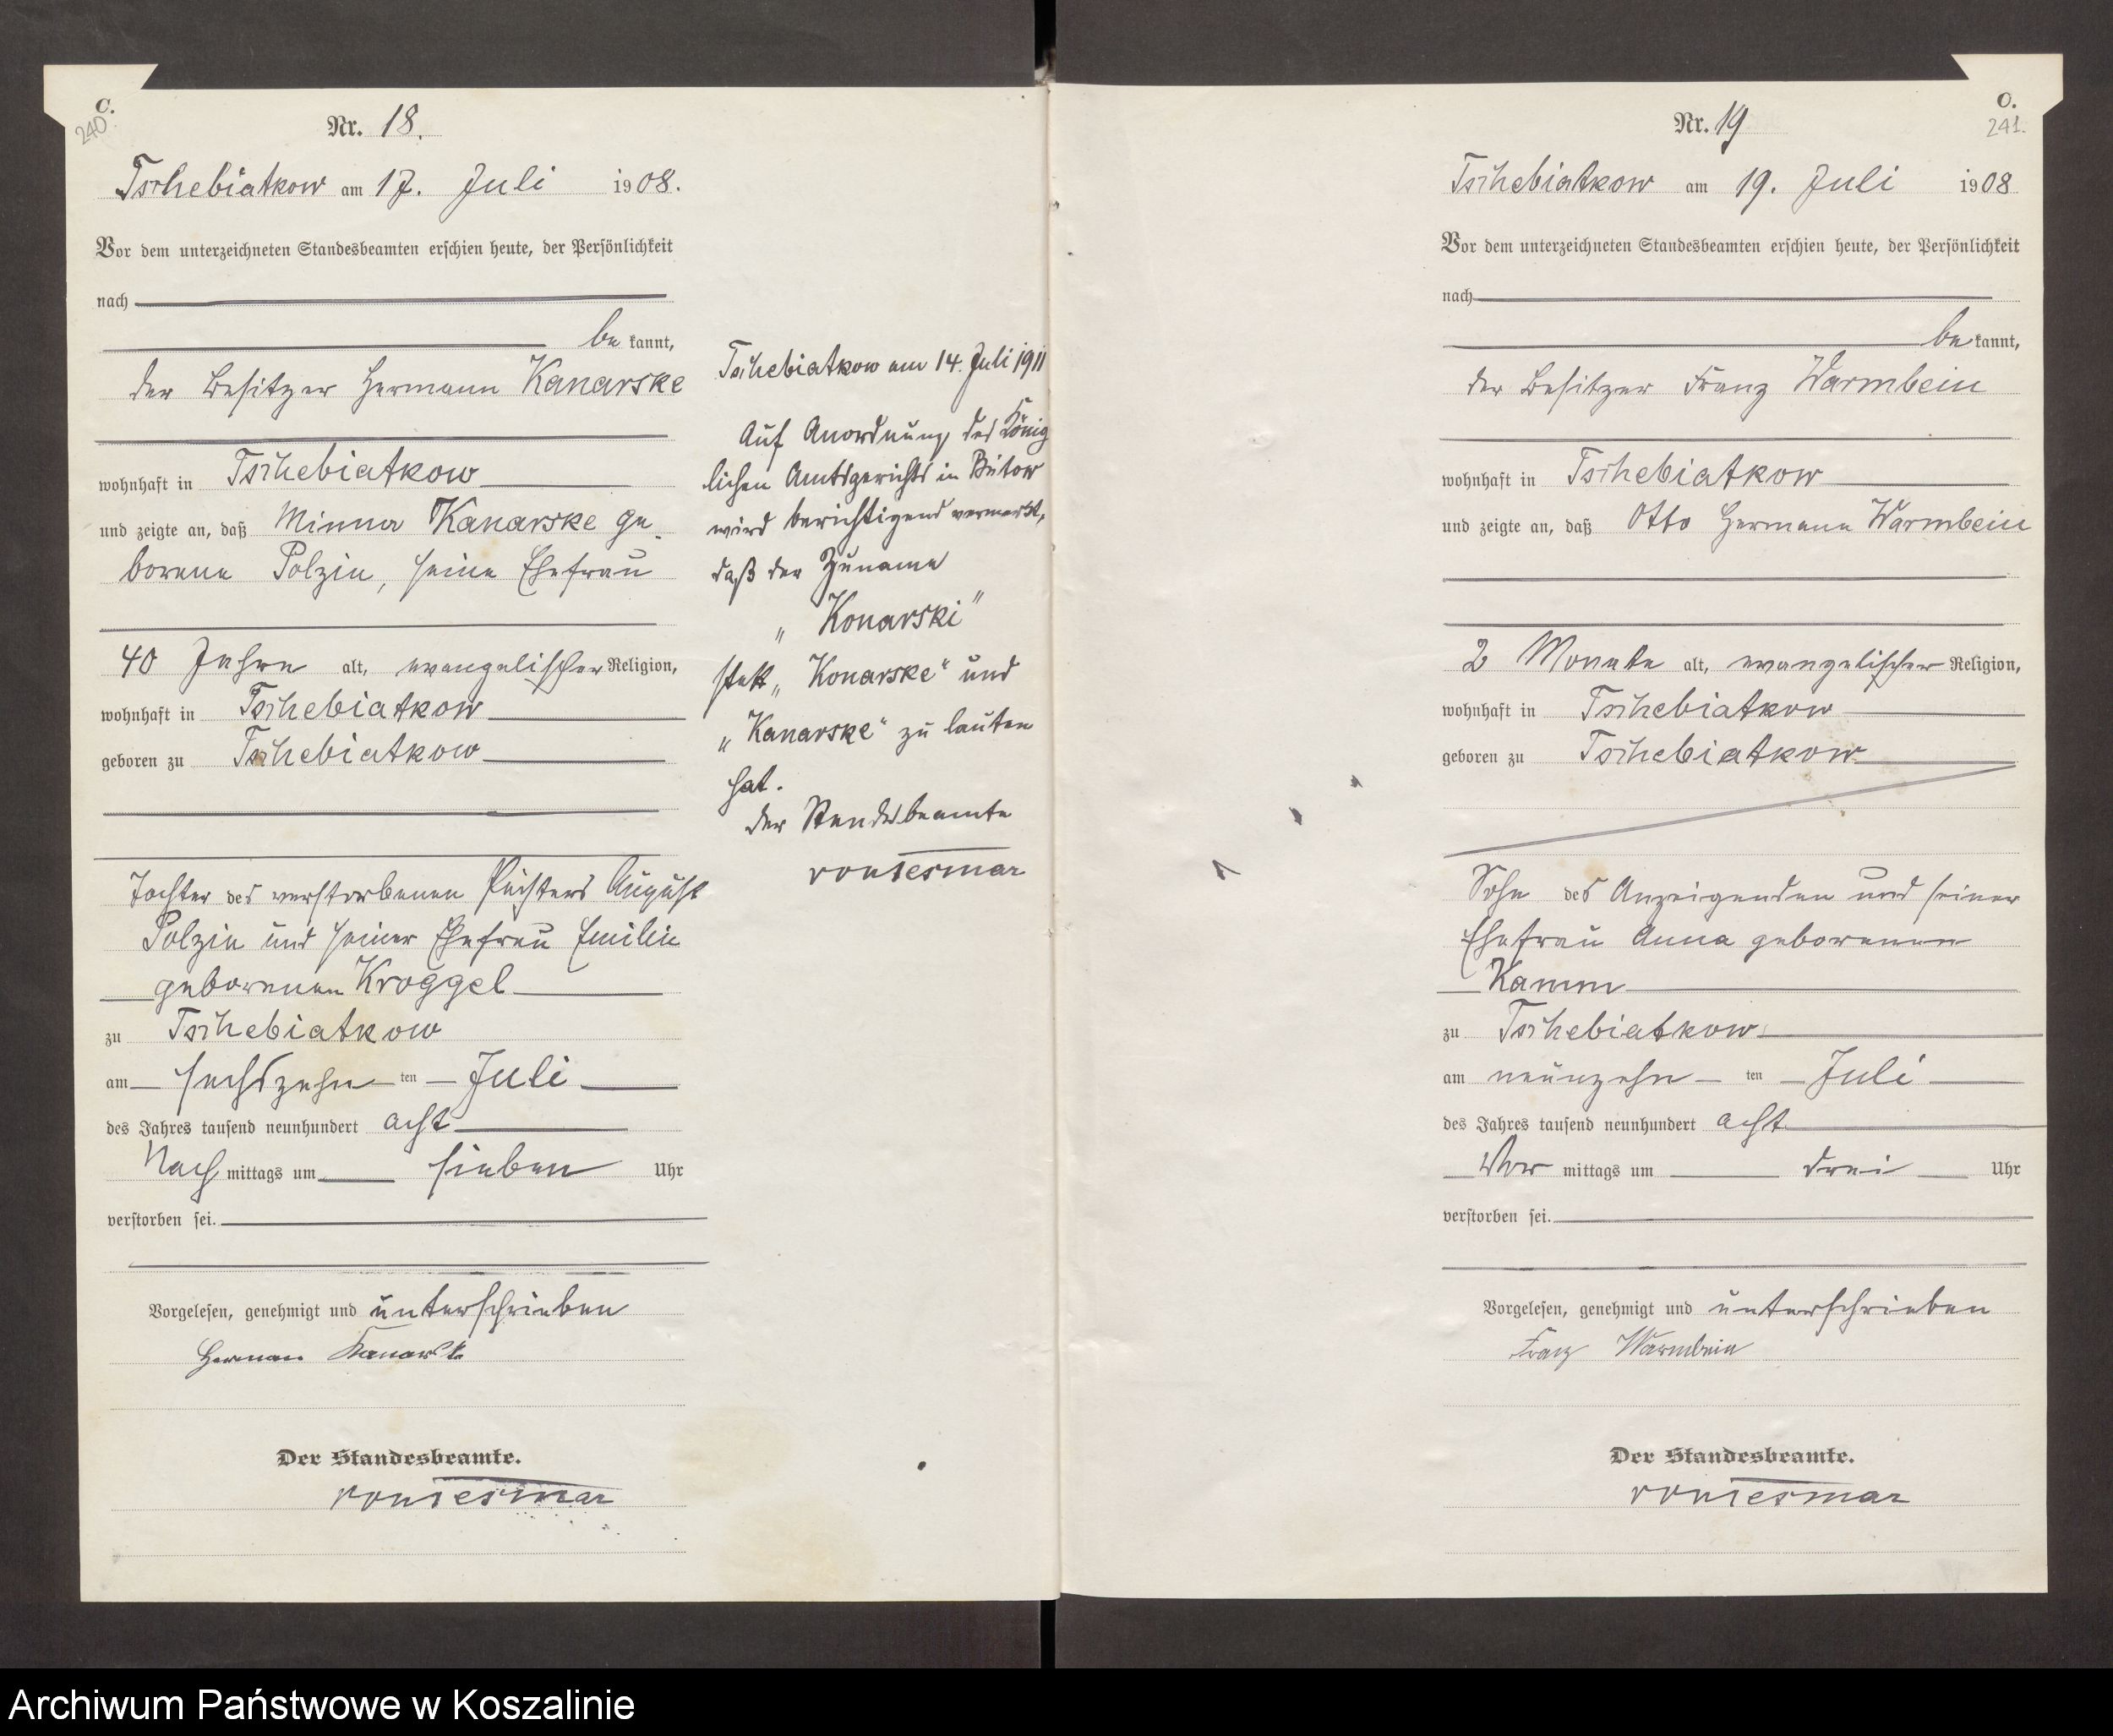 C.
240.
Nr. 18.
Tschebiatkow am 17. Juli 1908.
Vor dem unterzeichneten Standesbeamten erschien heute, der Persönlichkeit
nach
be kannt,
der Besitzer Hermann Kanarske
wohnhaft in Tschebiatkow
und zeigte an, daß Minna Kanarske ge-
borene Polzin, seine Ehefrau
40 Jahre alt, evangelischer Religion,
wohnhaft in Tschebiatkow
geboren zu Tschebiatkow
Tochter des verstorbenen August
Polzin und seiner Ehefrau Emilie
geborenen Kroggel
zu Tschebiatkow
am sechszehn ten Juli
des Jahres tausend neunhundert acht
Nach mittags um sieben Uhr
verstorben sei.
Vorgelesen, genehmigt und unterschrieben
Herman Kanarske
Der Standesbeamte.
Tschebiatkow am 14. Juli 1911
Auf Anordnung des König
lichen Amtsgerichts in Bütow
wird berichtigend vermerkt,
daß der Zuname
„Konarski"
statt „Konarske" und
„Kanarske" zu lauten
hat.
Der Standesbeamte
O.
241.
Nr. 19
Tschebiatkow am 19. Juli 1908
Vor dem unterzeichneten Standesbeamten erschien heute, der Persönlichkeit
nach
be kannt,
der Besitzer Franz Warmbein
wohnhaft in Tschebiatkow
und zeigte an, daß Otto Hermann Warmbein
2 Monate alt, evangelischer Religion,
wohnhaft in Tschebiatkow
geboren zu Tschebiatkow
Sohn des Anzeigenden und seiner
Ehefrau Anna geborenen
Kamm
zu Tschebiatkow
am neunzehn ten Juli
des Jahres tausend neunhundert acht
Vor mittags um drei Uhr
verstorben sei.
Vorgelesen, genehmigt und unterschrieben
Franz Warmbein
Der Standesbeamte.
Archiwum Państwowe w Koszalinie